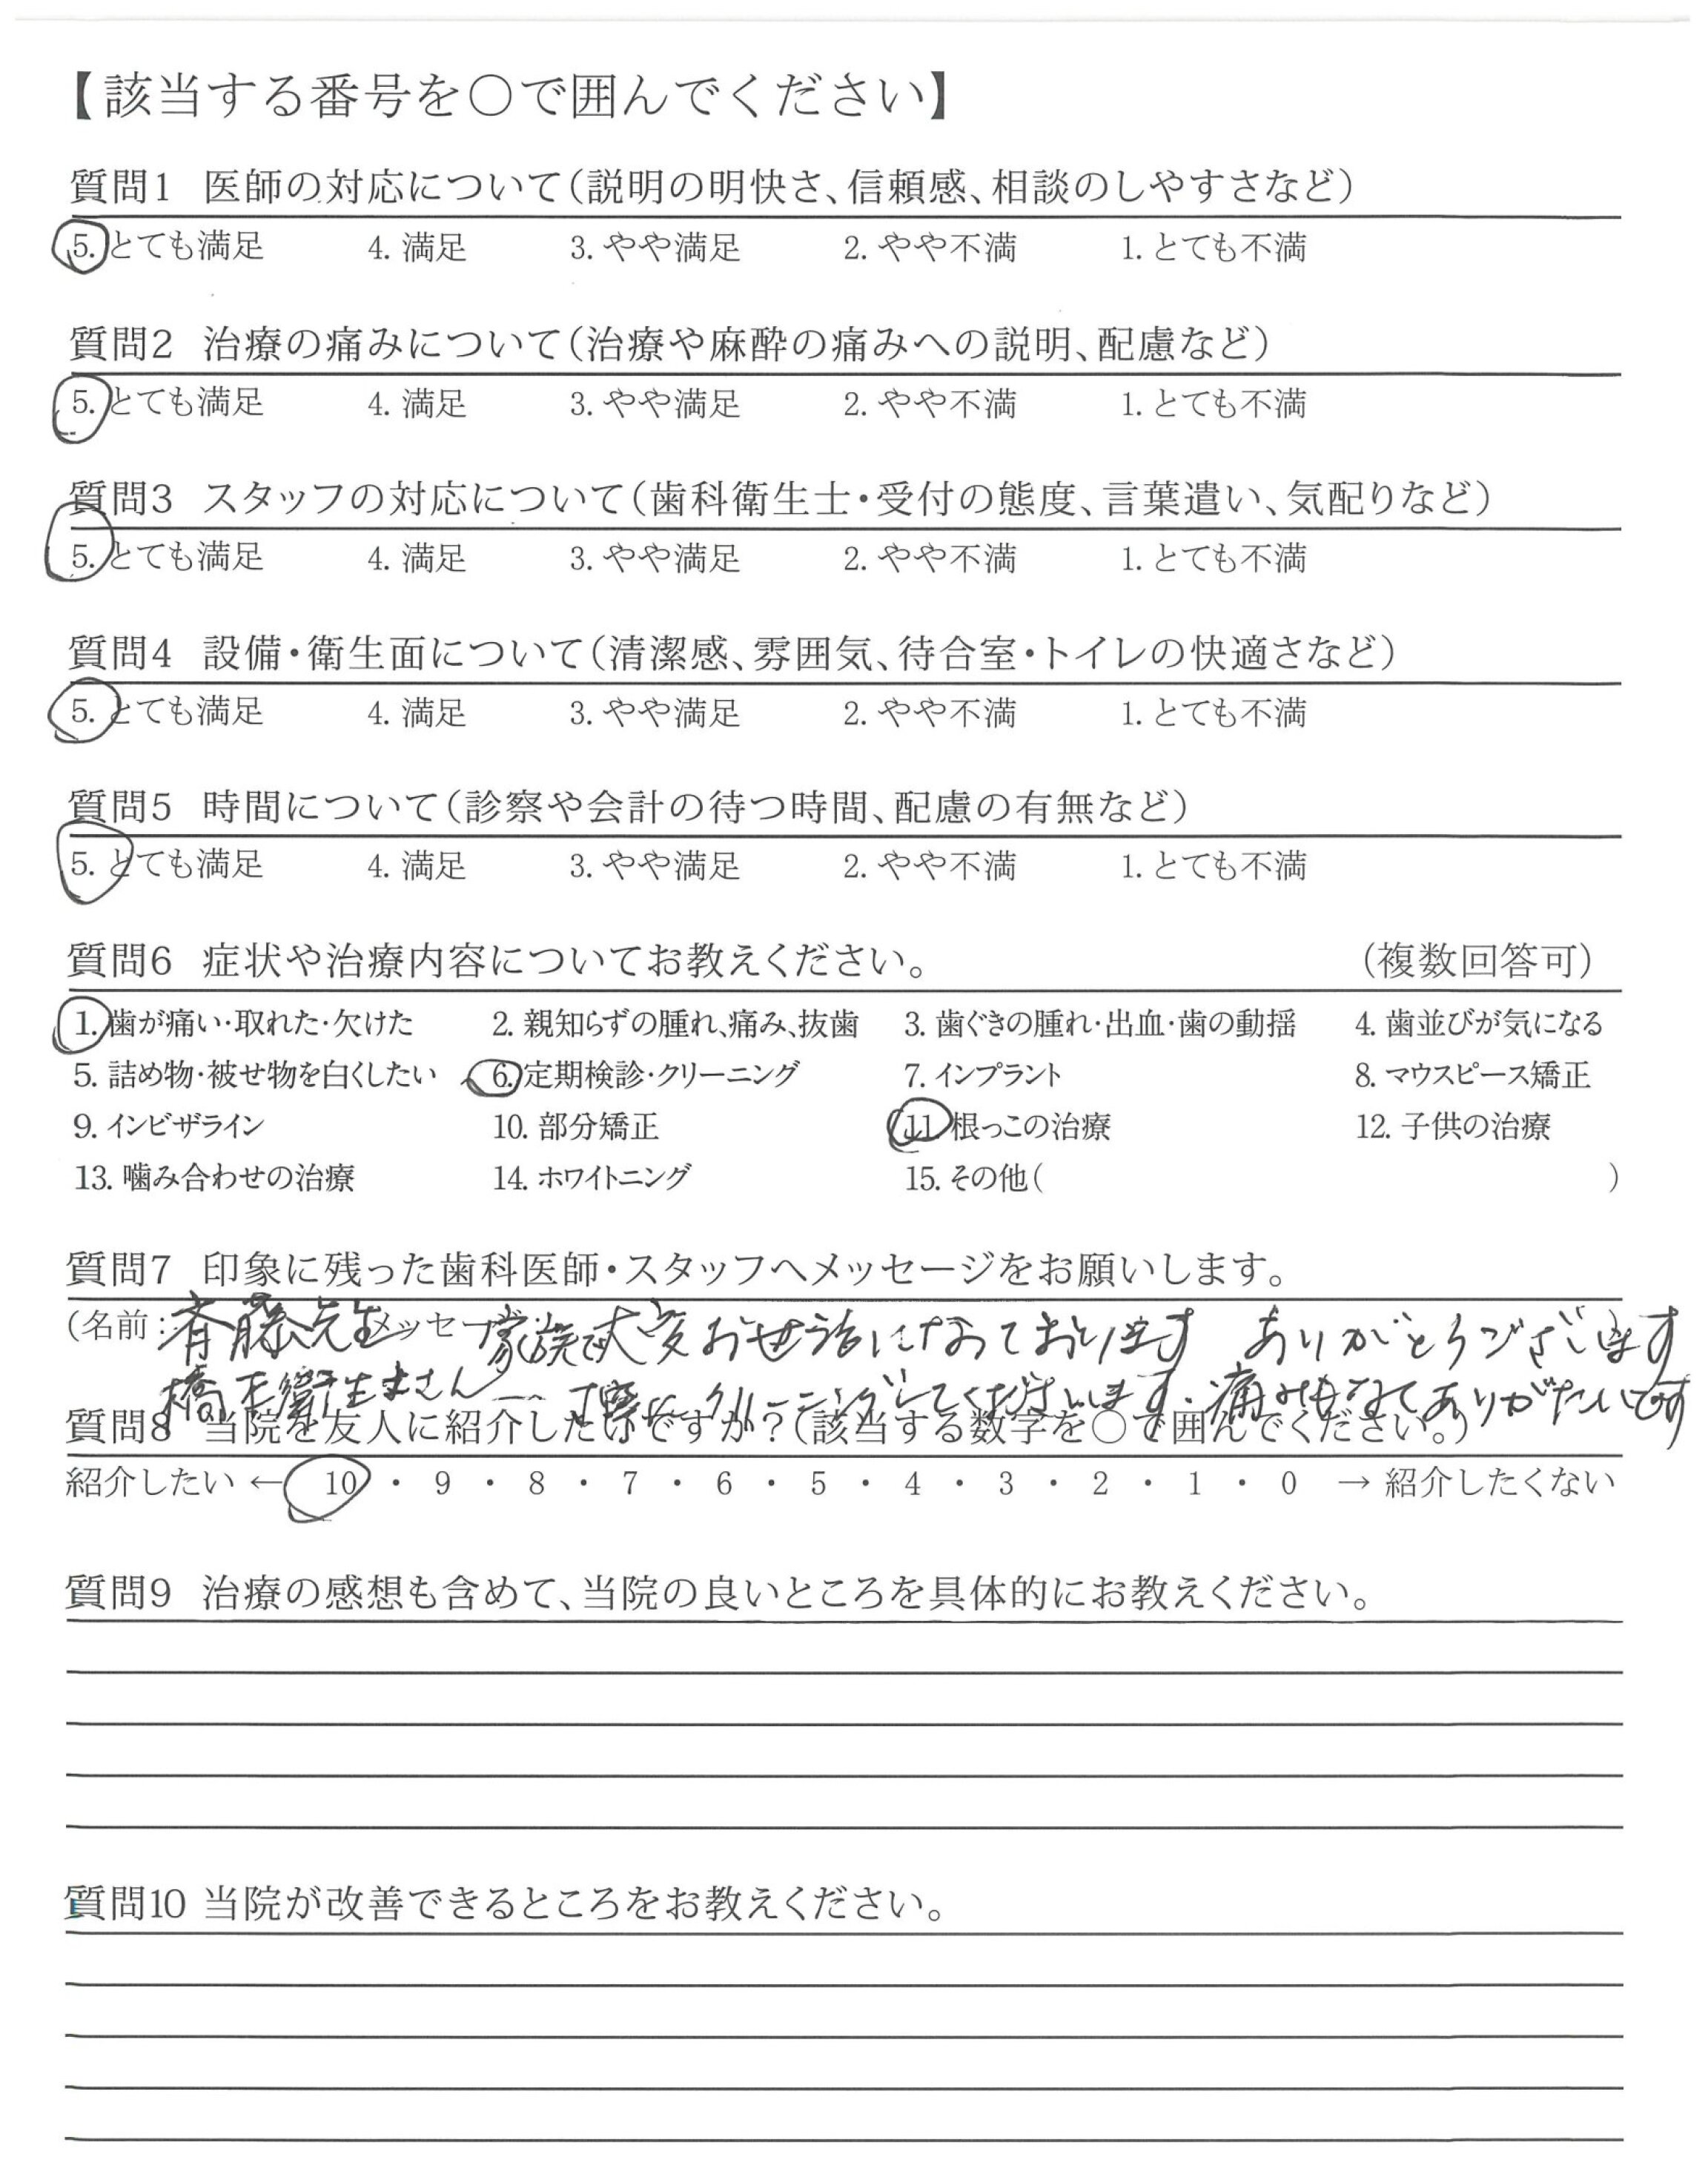 【該当する番号を○で囲んでください】
質問1 医師の対応について(説明の明快さ、信頼感、相談のしやすさなど)
5. とても満足 4. 満足 3. やや満足 2. やや不満 1. とても不満
質問2 治療の痛みについて(治療や麻酔の痛みへの説明、配慮など)
5. とても満足 4. 満足 3. やや満足 2. やや不満 1. とても不満
質問3 スタッフの対応について(歯科衛生士・受付の態度、言葉遣い、気配りなど)
5. とても満足 4. 満足 3. やや満足 2. やや不満 1. とても不満
質問4 設備・衛生面について(清潔感、雰囲気、待合室・トイレの快適さなど)
5. とても満足 4. 満足 3. やや満足 2. やや不満 1. とても不満
質問5 時間について(診察や会計の待つ時間、配慮の有無など)
5. とても満足 4. 満足 3. やや満足 2. やや不満 1. とても不満
質問6 症状や治療内容についてお教えください。 (複数回答可)
1. 歯が痛い・取れた・欠けた 2. 親知らずの腫れ、痛み、抜歯 3. 歯ぐきの腫れ・出血・歯の動揺 4. 歯並びが気になる
5. 詰め物・被せ物を白くしたい 6. 定期検診・クリーニング 7. インプラント 8. マウスピース矯正
9. インビザライン 10. 部分矯正 11. 根っこの治療 12. 子供の治療
13. 噛み合わせの治療 14. ホワイトニング 15. その他( )
質問7 印象に残った歯科医師・スタッフへメッセージをお願いします。
(名前: 斉藤先生 メッセー 家族で大変お世話になっております ありがとうございます
橋本衛生士さん 丁寧にクリーニングしてくださいます。痛みもなくてありがたいです
質問8 当院を友人に紹介したいですか?(該当する数字を○で囲んでください。)
紹介したい ← 10 ・ 9 ・ 8 ・ 7 ・ 6 ・ 5 ・ 4 ・ 3 ・ 2 ・ 1 ・ 0 → 紹介したくない
質問9 治療の感想も含めて、当院の良いところを具体的にお教えください。
質問10 当院が改善できるところをお教えください。